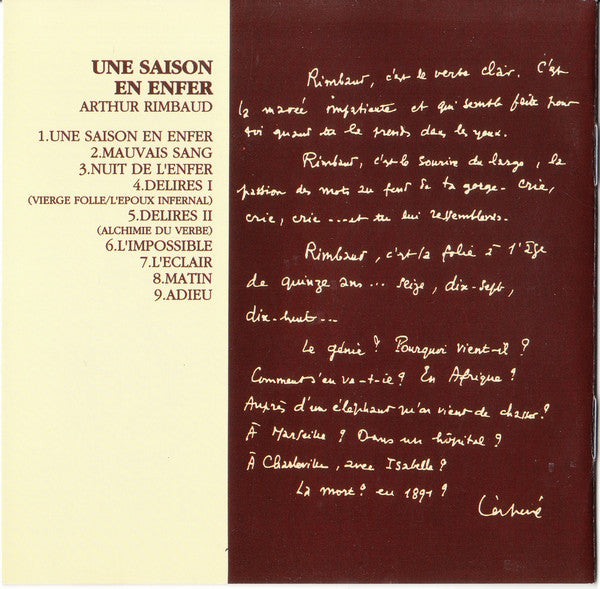 UNE SAISON
EN ENFER
ARTHUR RIMBAUD
1.UNE SAISON EN ENFER
2.MAUVAIS SANG
3.NUIT DE L'ENFER
4.DELIRES I
(VIERGE FOLLE/L'EPOUX INFERNAL)
5.DELIRES II
(ALCHIMIE DU VERBE)
6.L'IMPOSSIBLE
7.L'ECLAIR
8.MATIN
9.ADIEU
Rimbaud, c'est le verbe clair. C'est
la marée impatiente et qui semble faite pour
toi quand tu la prends dans les yeux.
Rimbaud, c'est le sourire du large, la
passion des mots au fond de ta gorge. Crie,
crie, crie ... et tu lui ressembleras.
Rimbaud, c'est la folie à l'âge
de quinze ans ... seize, dix-sept,
dix-huit ...
Le génie ? Pourquoi vient-il ?
Comment s'en va-t-il ? En Afrique ?
Auprès d'un éléphant qu'on vient de chasser ?
À Marseille ? Dans un hôpital ?
À Charleville, avec Isabelle ?
La mort ? en 1891 ?